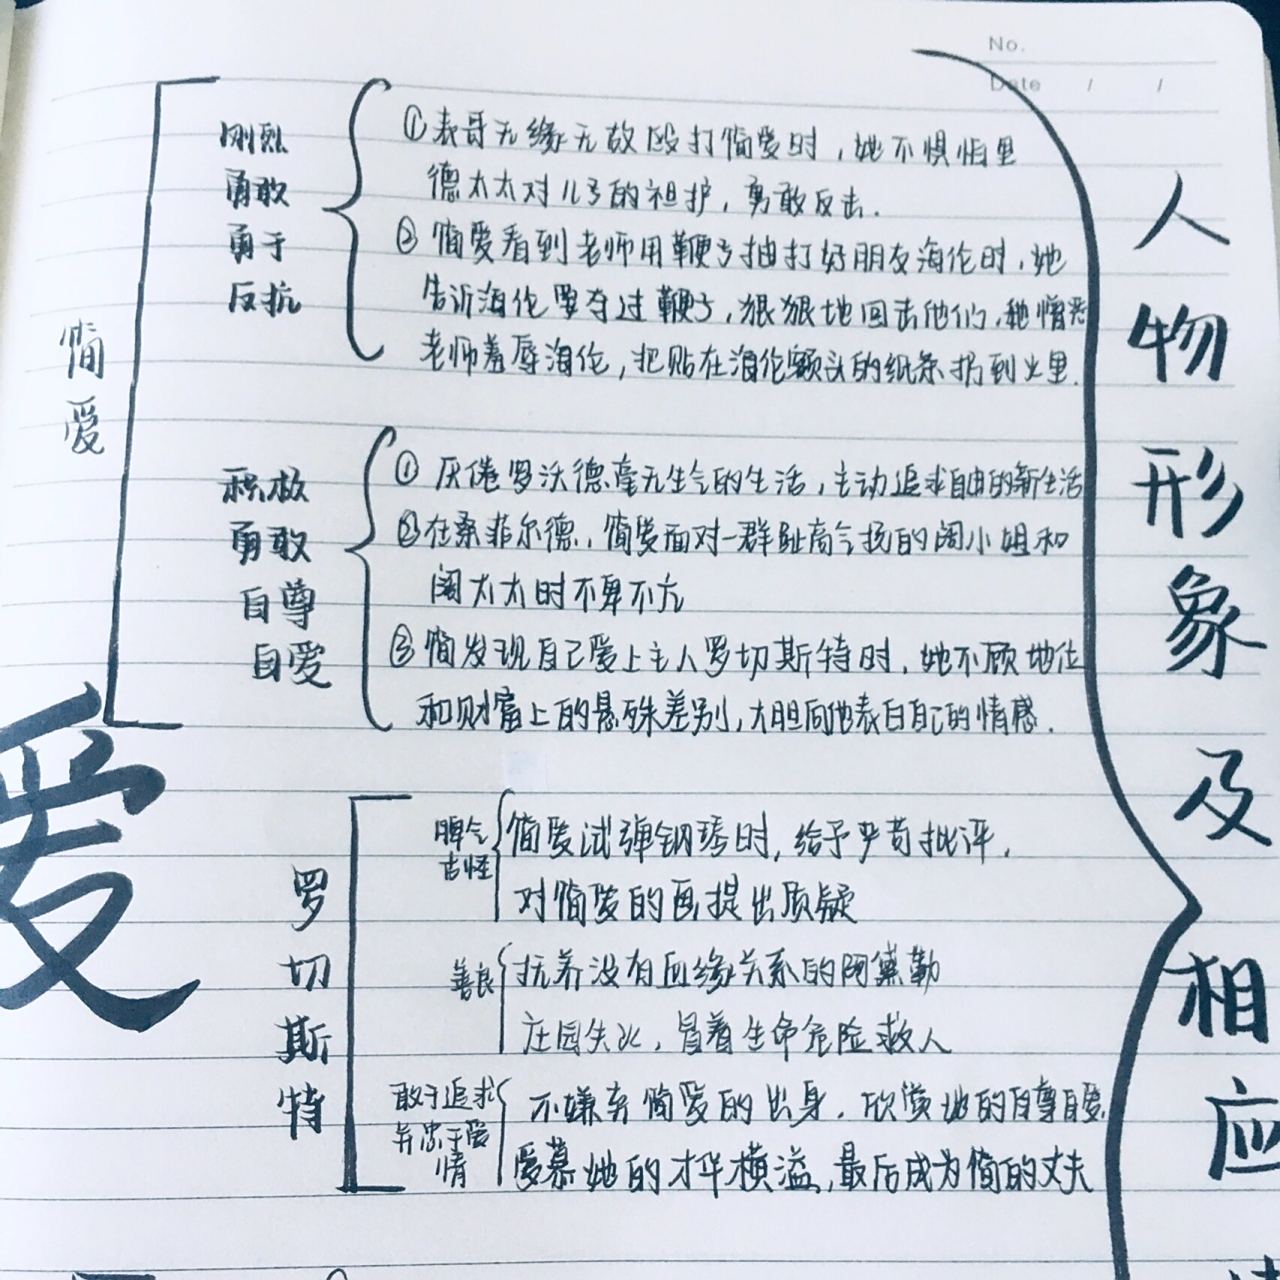 No.
Date / /
人物形象及相应
简爱
刚烈
勇敢
勇于
反抗
①表哥无缘无故殴打简爱时，她不惧怕里
德太太对儿子的袒护，勇敢反击.
② 简爱看到老师用鞭子抽打好朋友海伦时，她
告诉海伦要夺过鞭子，狠狠地回击他们，她憎恶
老师羞辱海伦，把贴在海伦额头的纸条扔到火里.
积极
勇敢
自尊
自爱
① 厌倦罗沃德毫无生气的生活，主动追求自由的新生活
②在桑菲尔德，简爱面对一群趾高气扬的阔小姐和
阔太太时不卑不亢
③简发现自己爱上主人罗切斯特时，她不顾地位
和财富上的悬殊差别，大胆向他表白自己的情感.
爱
罗切斯特
脾气
古怪
简爱试弹钢琴时，给予严苛批评，
对简爱的画提出质疑
善良
抚养没有血缘关系的阿黛勒
庄园失火，冒着生命危险救人
敢于追求
并忠于爱
情
不嫌弃简爱的出身，欣赏她的自尊自爱，
爱慕她的才华横溢，最后成为简的丈夫